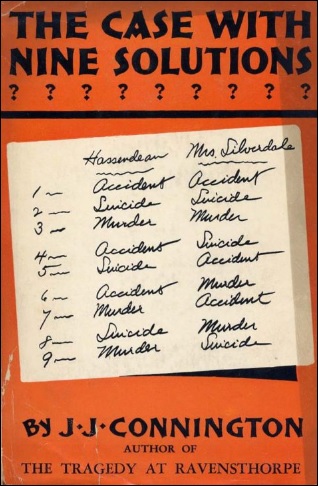 THE CASE WITH
NINE SOLUTIONS
? ? ? ? ? ? ? ? ?
Hassendean Mrs. Silverdale
1 — Accident Accident
2 — Suicide Suicide
3 — Murder Murder
4 — Accident Suicide
5 — Suicide Accident
6 — Accident Murder
7 — Murder Accident
8 — Suicide Murder
9 — Murder Suicide
BY J·J·CONNINGTON
AUTHOR OF
THE TRAGEDY AT RAVENSTHORPE